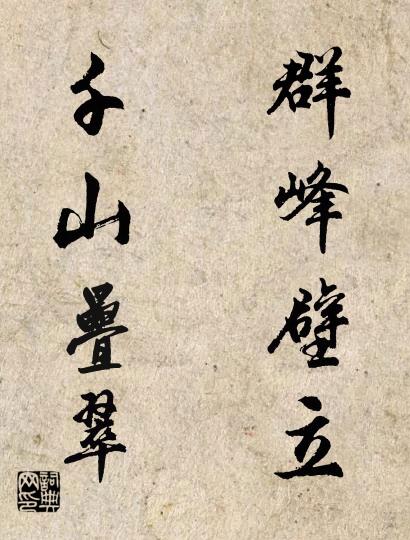 群峰壁立
千山疊翠
詞典网印